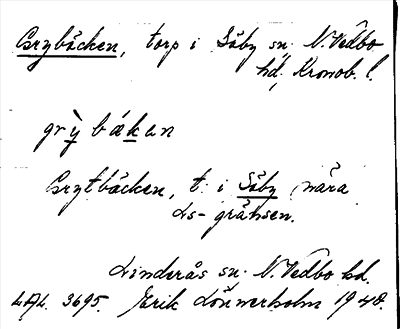 Grybäcken, torp i Säby sn, N. Vedbo
hd, Kronob. l.
grỳ bäkan
Grytbäcken, t. i Säby nära
Ls-gränsen.
Linderås sn. N. Vedbo hd.
LAL. 3695. Erik Lönnerholm 1948.